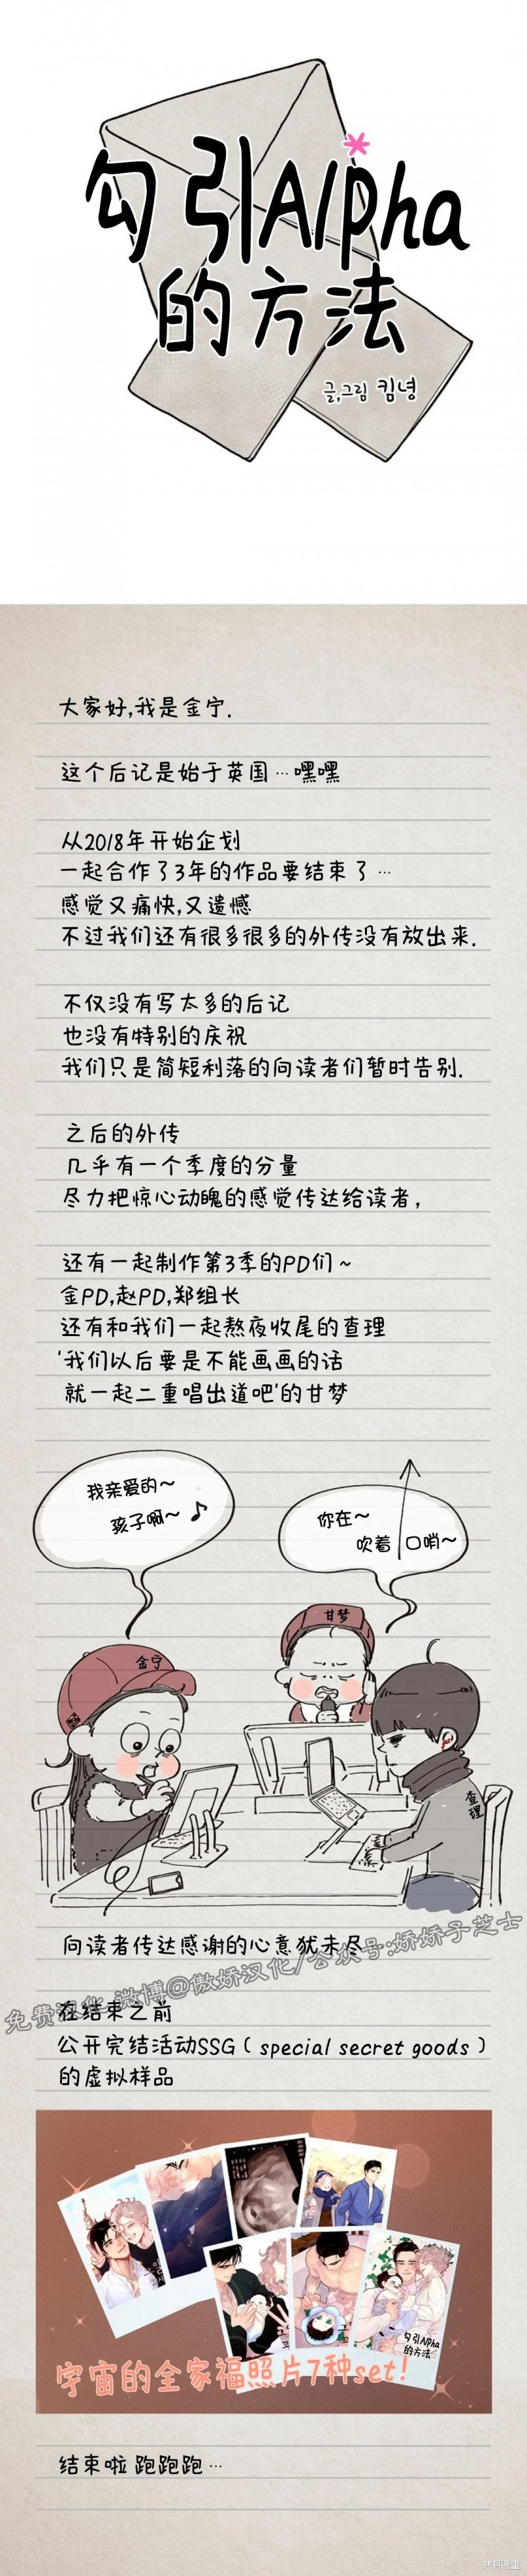 勾引Alpha
的方法
글,그림 킴녕
大家好,我是金宁.
这个后记是始于英国…嘿嘿
从2018年开始企划
一起合作了3年的作品要结束了…
感觉又痛快,又遗憾
不过我们还有很多很多的外传没有放出来.
不仅没有写太多的后记
也没有特别的庆祝
我们只是简短利落的向读者们暂时告别.
之后的外传
几乎有一个季度的分量
尽力把惊心动魄的感觉传达给读者,
还有一起制作第3季的PD们~
金PD,赵PD,郑组长
还有和我们一起熬夜收尾的查理
'我们以后要是不能画画的话
就一起二重唱出道吧'的甘梦
我亲爱的~
孩子啊~♪
你在~
吹着 口哨~
甘梦
金宁
查理
向读者传达感谢的心意犹未尽
免费汉化 微博@傲娇汉化/公众号:娇娇子芝士
在结束之前
公开完结活动SSG(special secret goods)
的虚拟样品
勾引Alpha
的方法
宇宙的全家福照片7种set!
结束啦 跑跑跑…